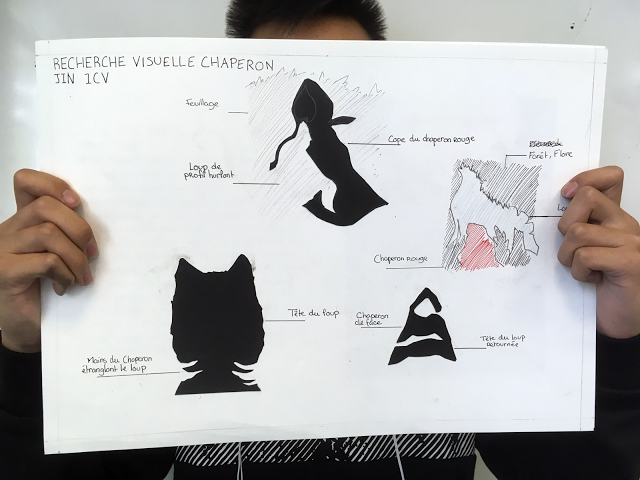 RECHERCHE VISUELLE CHAPERON
JIN 1CV
Feuillage
Cape du chaperon rouge
Loup de
profil hurlant
Forêt, Flore
Chaperon Rouge
Tête du loup
Chaperon
de face
Tête du loup
Détournée
Mains du Chaperon
étranglant le loup